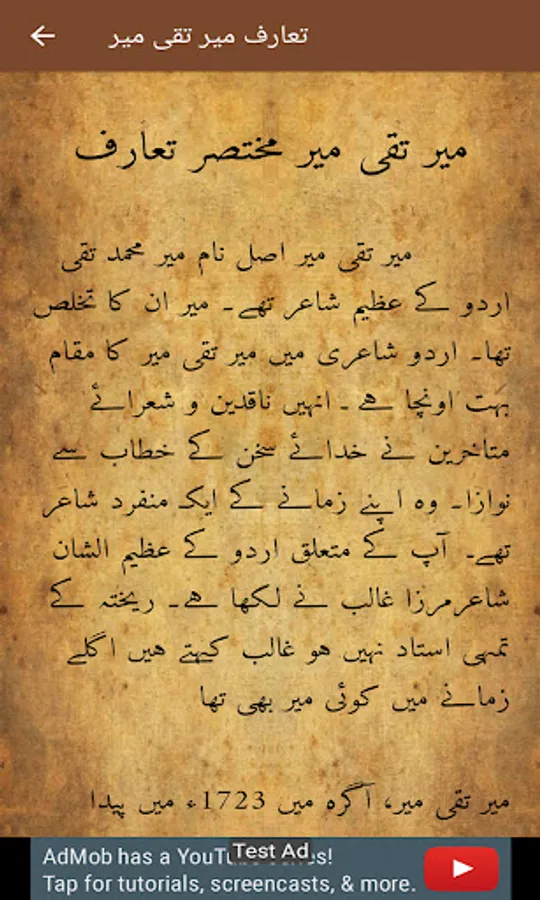 تعارف میر تقی میر
میر تقی میر مختصر تعارف
میر تقی میر اصل نام میر محمد تقی
اردو کے عظیم شاعر تھے۔ میر ان کا تخلص
تھا۔ اردو شاعری میں میر تقی میر کا مقام
بہت اونچا ہے ۔ انہیں ناقدین و شعرائے
متاخرین نے خدائے سخن کے خطاب سے
نوازا۔ وہ اپنے زمانے کے ایک منفرد شاعر
تھے۔ آپ کے متعلق اردو کے عظیم الشان
شاعرمرزا غالب نے لکھا ہے۔ ریختہ کے
تمہی استاد نہیں ہو غالب کہتے ہیں اگلے
زمانے میں کوئی میر بھی تھا
میر تقی میر، آگرہ میں 1723ء میں پیدا
Test Ad
AdMob has a YouTube series!
Tap for tutorials, screencasts, & more.